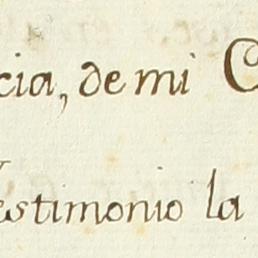 cia, de mi C
estimonio la